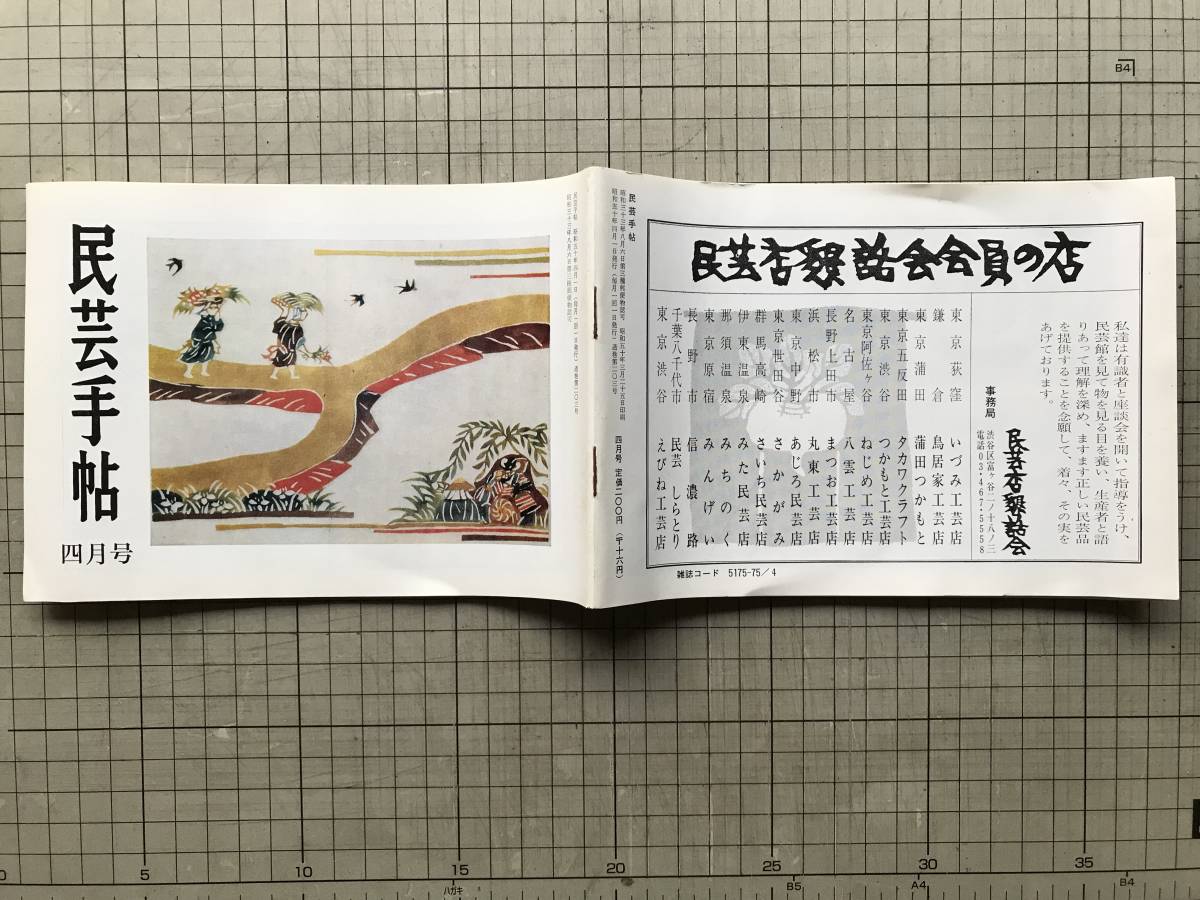 民芸手帖
四月号
民芸手帖 昭和五十年四月一日(毎月一回一日発行)通巻第二〇三号
昭和三十三年八月六日第三種郵便物認可
民芸手帖
昭和三十三年八月六日第三種郵便物認可 昭和五十年三月二十五日印刷
昭和五十年四月一日発行(毎月一回一日発行)通巻第二〇三号
四月号 定価二〇〇円(〒十六円)
民芸店懇話会会員の店
私達は有識者と座談会を開いて指導をうけ、
民芸館を見て物を見る目を養い、生産者と語
りあって理解を深め、ますます正しい民芸品
を提供することを念願して、着々、その実を
あげております。
民芸店懇話会
事務局 渋谷区富ヶ谷二ノ十八ノ三
電話03・467・5558
東京荻窪 いづみ工芸店
鎌倉 鳥居家工芸店
東京蒲田 蒲田つかもと
東京五反田 タカワクラフト
東京渋谷 つかもと工芸店
東京阿佐ヶ谷 ねじめ工芸店
名古屋 八雲工芸店
長野上田市 まつお工芸店
浜松市 丸東工芸店
東京中野 あじろ民芸店
東京世田谷 さかがみ
群馬高崎 さいち民芸店
伊東温泉 みた民芸店
那須温泉 みちのく
東京原宿 みんげい
長野市 信濃路
千葉八千代市 民芸 しらとり
東京渋谷 えびね工芸店
雑誌コード 5175-75/4
B4
0
5
10
15
20
25
30
35
ハガキ
B5
A4
B4